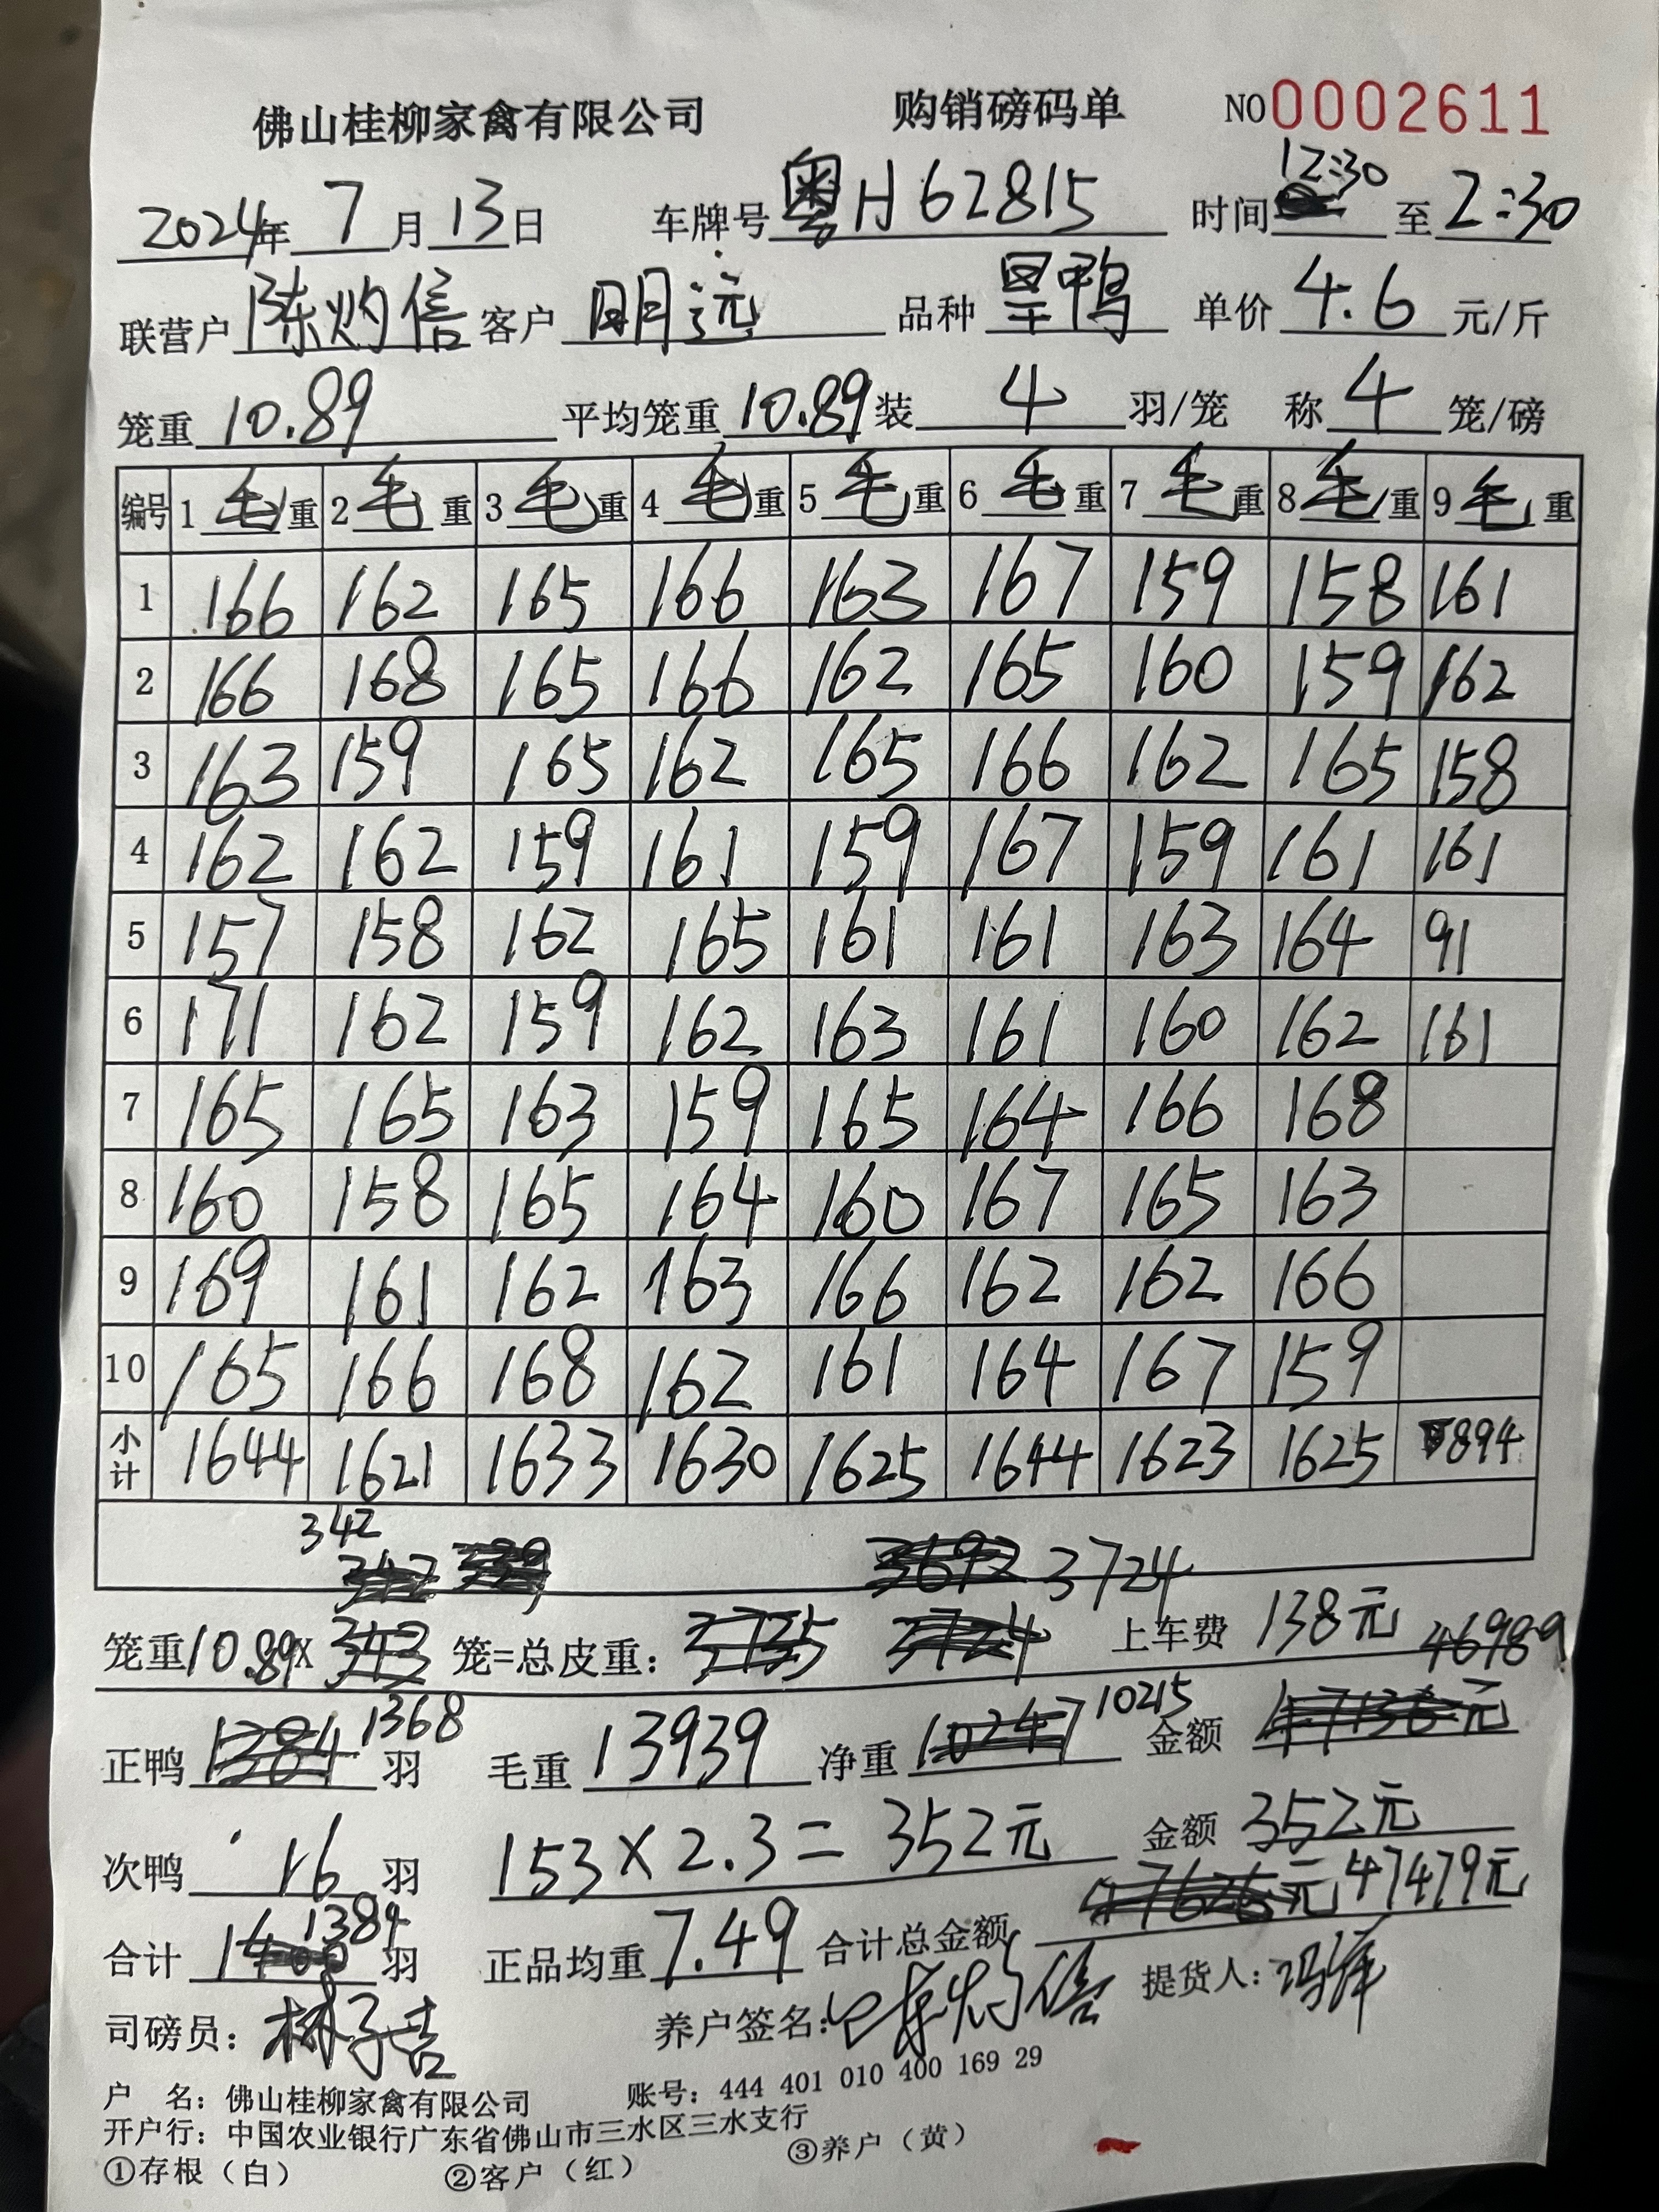 佛山桂柳家禽有限公司 购销磅码单 NO 0002611
2024年 7 月 13 日 车牌号 粤H62815 时间 12:30 至 2:30
联营户 陈灼信 客户 明远 品种 旱鸭 单价 4.6 元/斤
笼重 10.89 平均笼重 10.89 装 4 羽/笼 称 4 笼/磅
编号 1 毛 重 2 毛 重 3 毛 重 4 毛 重 5 毛 重 6 毛 重 7 毛 重 8 毛 重 9 毛 重
1 166 162 165 166 163 167 159 158 161
2 166 168 165 166 162 165 160 159 162
3 163 159 165 162 165 166 162 165 158
4 162 162 159 161 159 167 159 161 161
5 157 158 162 165 161 161 163 164 91
6 171 162 159 162 163 161 160 162 161
7 165 165 163 159 165 164 166 168
8 160 158 165 164 160 167 165 163
9 169 161 162 163 166 162 162 166
10 165 166 168 162 161 164 167 159
小计 1644 1621 1633 1630 1625 1644 1623 1625 894
342 3724
笼重 10.89 X 笼=总皮重： 上车费 138元 46989
正鸭 1368 羽 毛重 13939 净重 10215 金额 元
次鸭 16 羽 153 × 2.3 = 352元 金额 352元
合计 1384 羽 正品均重 7.49 合计总金额 元 47479元
司磅员： 林子吉 养户签名： 陈灼信 提货人：
户 名：佛山桂柳家禽有限公司 账号：444 401 010 400 169 29
开户行：中国农业银行广东省佛山市三水区三水支行
①存根（白） ②客户（红） ③养户（黄）